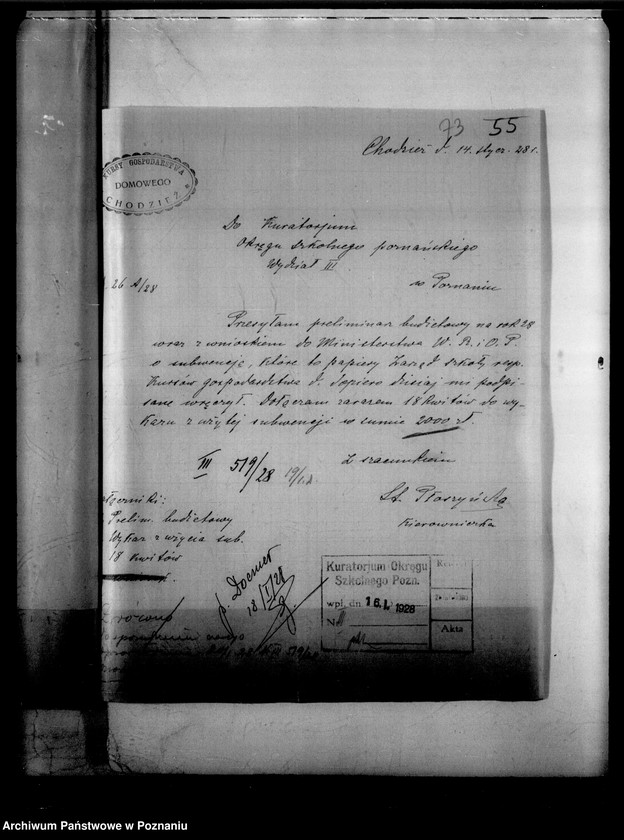 73 55
Chodzież d. 14. stycz. 28 r.
KURSY GOSPODARSTWA
DOMOWEGO
CHODZIEŻ
Do Kuratorjum
Okręgu szkolnego poznańskiego
Wydział III
w Poznaniu
26 /28
Przesyłam preliminarz budżetowy na rok 28
wraz z wnioskiem do Ministerstwa W. R. i O. P.
o subwencję, które to papiery Zarząd szkoły resp.
Kursów gospodarstwa d. dopiero dzisiaj mi podpi
sane wręczył. Dołączam zarazem 18 kwitów do wy-
kazu z użytej subwencji w sumie 2000 zł.
Z szacunkiem
III 519/28
St. Płoszyńska
kierowniczka
Prelim. budżetowy
Wykaz z użycia sub.
18 kwitów
p.
18/I/28
Kuratorjum Okręgu
Szkolnego Pozn.
wpł. dn. 16. I. 1928
N
Akta
III 519/28
Archiwum Państwowe w Poznaniu